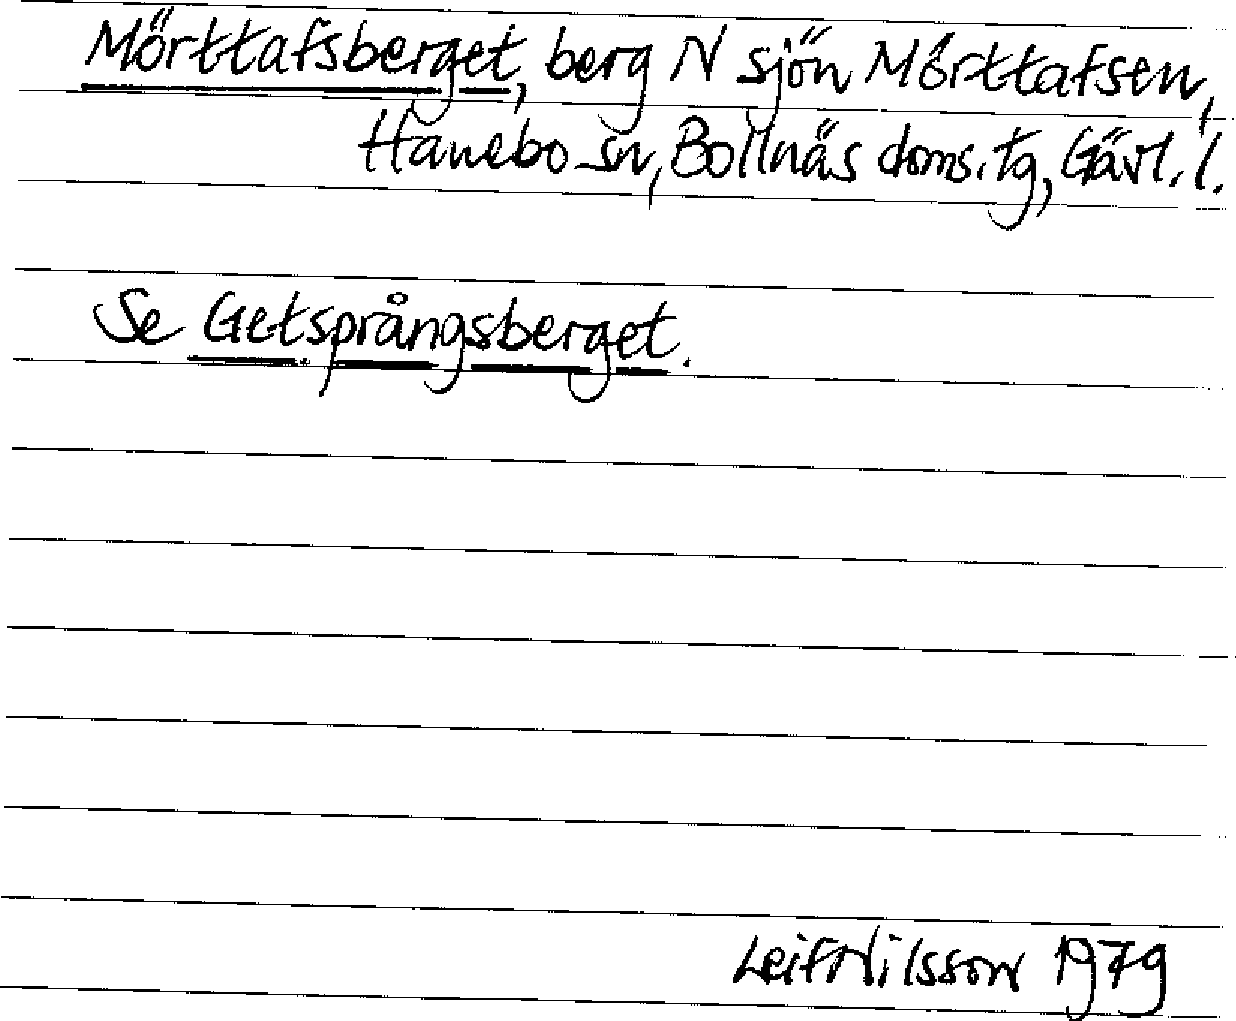 Mörttafsberget, berg N sjön Mörttafsen,
Hanebo sn, Bollnäs doms. tg, Gävl. l.
Se Getsprångsberget.
Leif Nilsson 1979